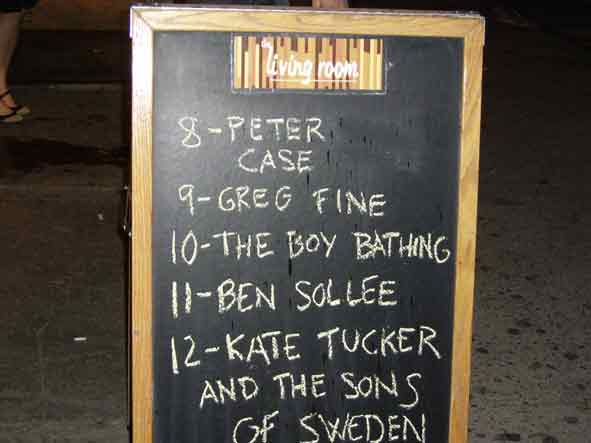 the
living room
8-PETER
CASE
9-GREG FINE
10-THE BOY BATHING
11-BEN SOLLEE
12-KATE TUCKER
AND THE SONS
OF SWEDEN